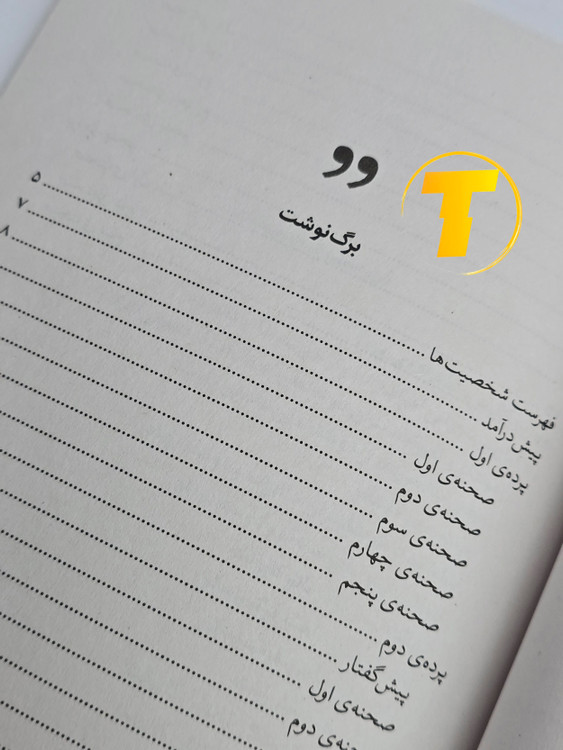 T
برگ‌نوشت
فهرست شخصیت‌ها ۵
پیش‌درآمد ۷
پرده‌ی اول ۸
صحنه‌ی اول
صحنه‌ی دوم
صحنه‌ی سوم
صحنه‌ی چهارم
صحنه‌ی پنجم
پرده‌ی دوم
پیش‌گفتار
صحنه‌ی اول
صحنه‌ی دوم